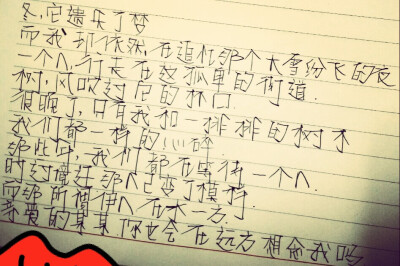 冬,它遗失了梦
而我却依然在追忆那个大雪份飞的夜
一个人,行走在这孤单的街道.
树,风吹过后的林口.
很晚了,只有我和一排排的树木
我们都一样的心碎
那些时,我们都在等待一个人.
时过境迁那人已变了模样.
而那所谓伊人在水一方.
亲爱的某某你也会在远方想念我吗